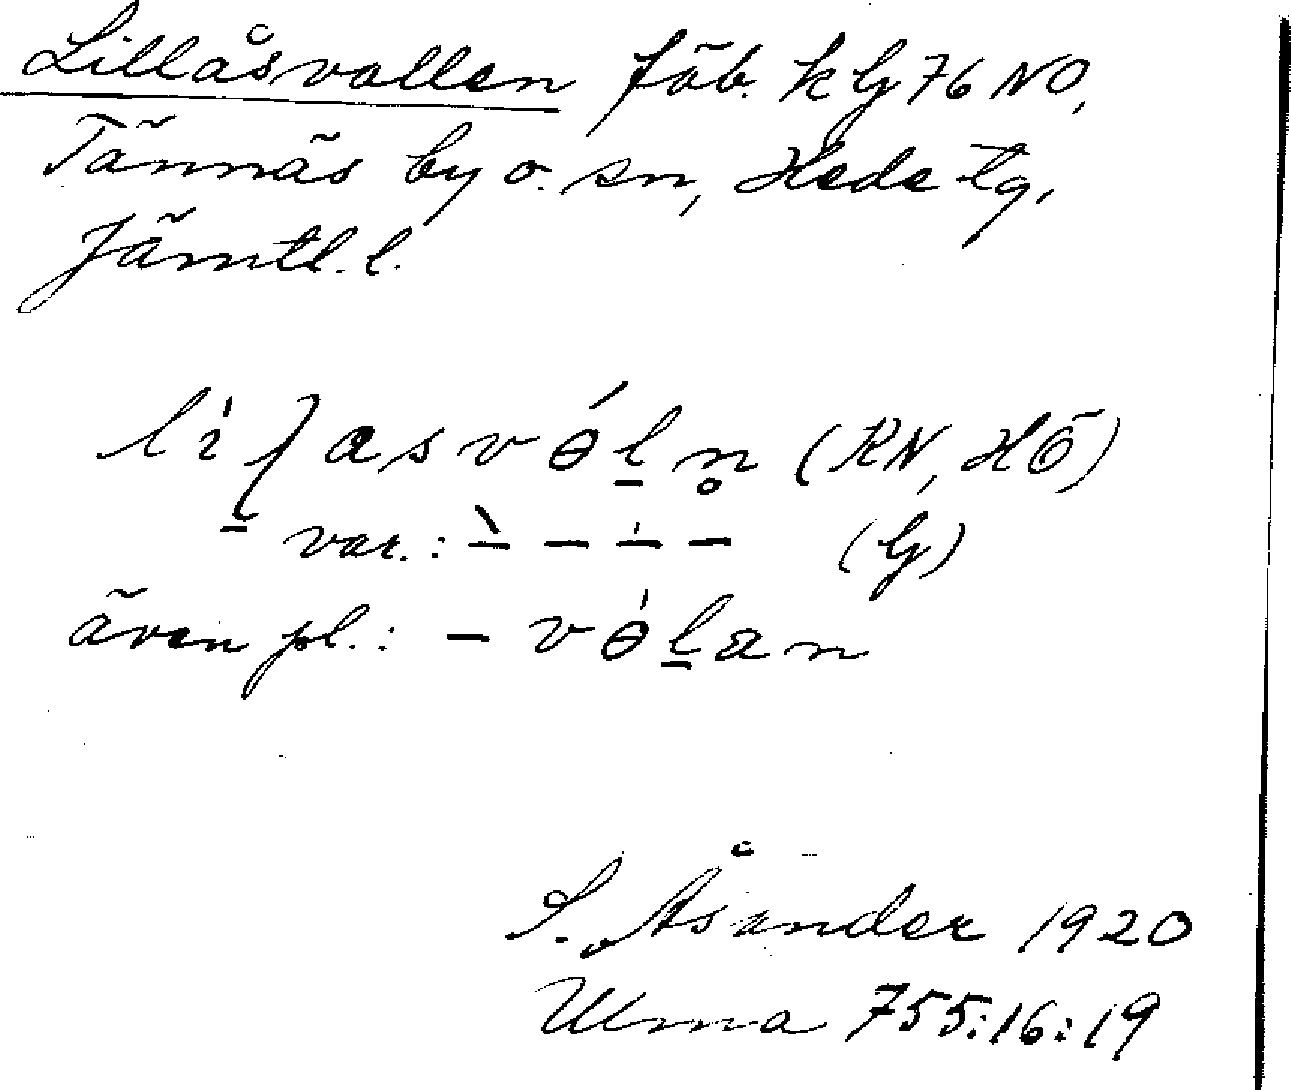 Lillåsvallen fäb. k G 76 NO,
Tännäs by o. sn, Hede tg,
Jämtl. l.
(RN, HÖ)
var.: (G)
även pl.:
S. Åsander 1920
Ulma 755:16:19